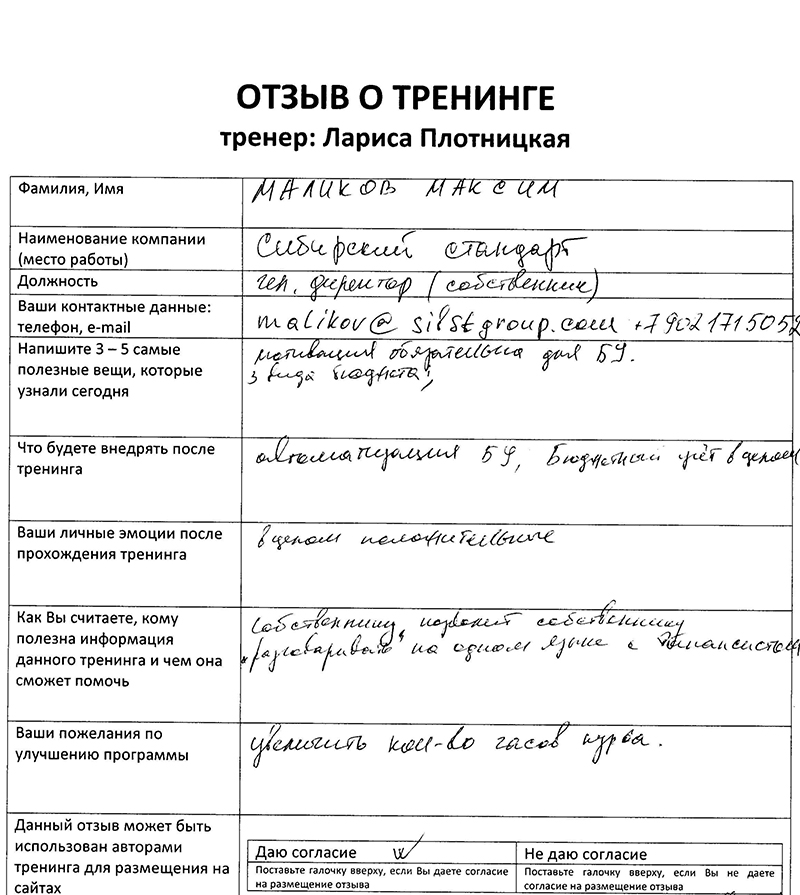 ОТЗЫВ О ТРЕНИНГЕ
тренер: Лариса Плотницкая
Фамилия, Имя
МАЛИКОВ МАКСИМ
Наименование компании
(место работы)
Сибирский стандарт
Должность
ген. директор (собственник)
Ваши контактные данные:
телефон, e-mail
malikov@sibstgroup.com +79021715052
Напишите 3 – 5 самые
полезные вещи, которые
узнали сегодня
мотивация обязательна для БУ.
3 вида бюджета;
Что будете внедрять после
тренинга
автоматизация БУ, Бюджетный учёт в целом
Ваши личные эмоции после
прохождения тренинга
в целом положительные
Как Вы считаете, кому
полезна информация
данного тренинга и чем она
сможет помочь
Собственнику, позволит собственнику
"разговаривать" на одном языке с финансистом
Ваши пожелания по
улучшению программы
увеличить кол-во часов курса.
Данный отзыв может быть
использован авторами
тренинга для размещения на
сайтах
Даю согласие
Поставьте галочку вверху, если Вы даете согласие
на размещение отзыва
Не даю согласие
Поставьте галочку вверху, если Вы не даете
согласие на размещение отзыва